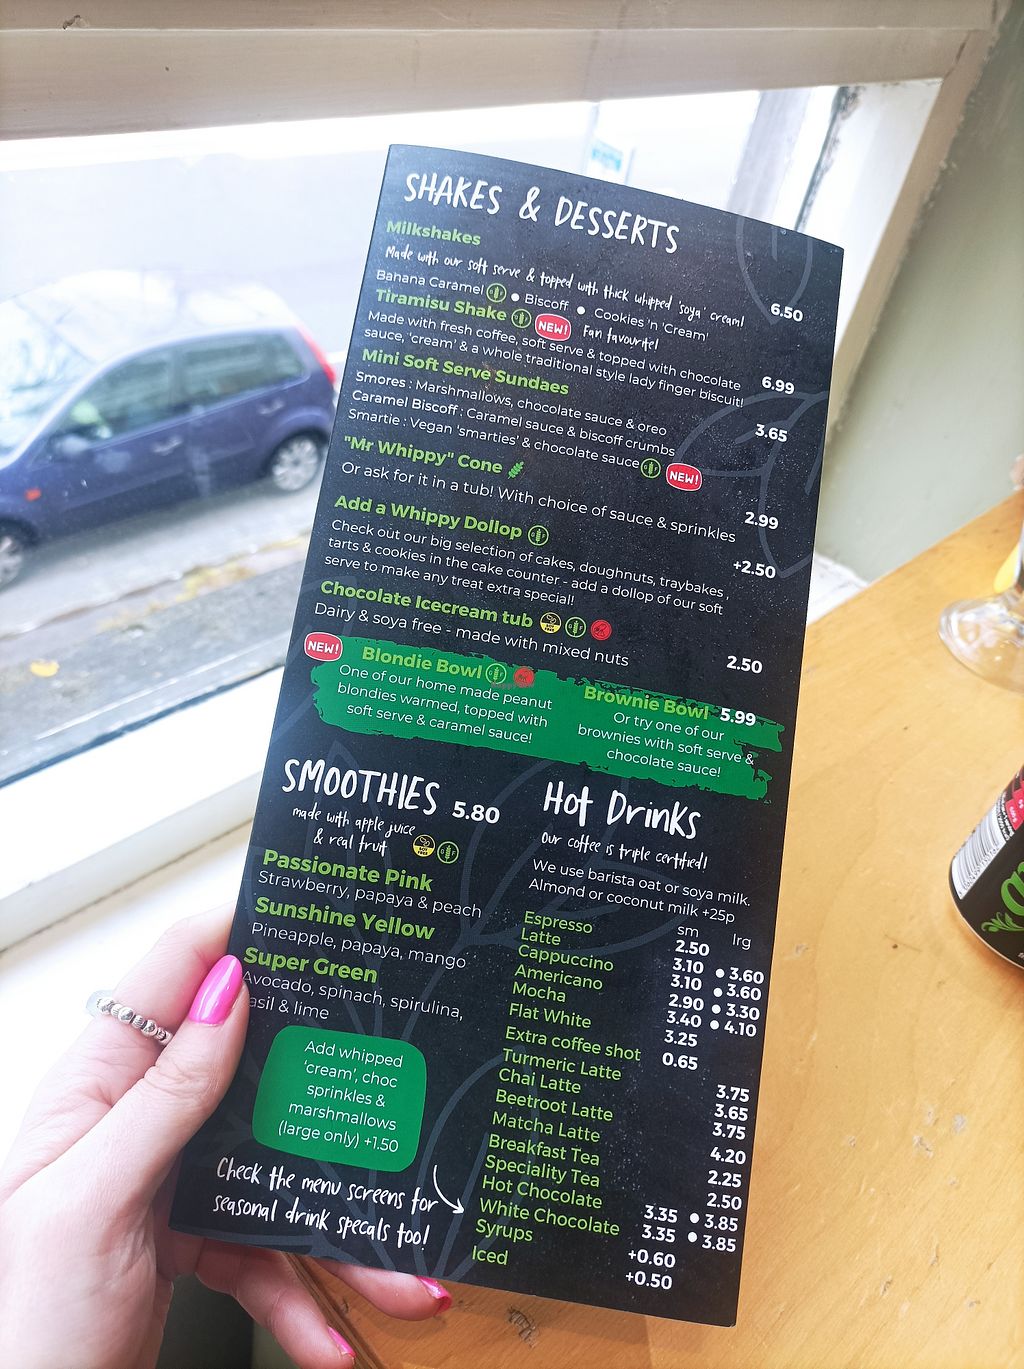 SHAKES & DESSERTS
Milkshakes
Made with our soft serve & topped with thick whipped 'soya' cream!
Bahana Caramel GF • Biscoff • Cookies 'n 'Cream' 6.50
Tiramisu Shake GF NEW! Fan favourite!
Made with fresh coffee, soft serve & topped with chocolate
sauce, 'cream' & a whole traditional style lady finger biscuit! 6.99
Mini Soft Serve Sundaes
Smores : Marshmallows, chocolate sauce & oreo
Caramel Biscoff : Caramel sauce & biscoff crumbs 3.65
Smartie : Vegan 'smarties' & chocolate sauce GF NEW!
"Mr Whippy" Cone
Or ask for it in a tub! With choice of sauce & sprinkles 2.99
Add a Whippy Dollop +2.50
Check out our big selection of cakes, doughnuts, traybakes ,
tarts & cookies in the cake counter - add a dollop of our soft
serve to make any treat extra special!
Chocolate Icecream tub
Dairy & soya free - made with mixed nuts 2.50
NEW!
Blondie Bowl
One of our home made peanut
blondies warmed, topped with
soft serve & caramel sauce!
Brownie Bowl 5.99
Or try one of our
brownies with soft serve &
chocolate sauce!
SMOOTHIES 5.80
made with apple juice
& real fruit
Passionate Pink
Strawberry, papaya & peach
Sunshine Yellow
Pineapple, papaya, mango
Super Green
Avocado, spinach, spirulina,
asil & lime
Add whipped
'cream', choc
sprinkles &
marshmallows
(large only) +1.50
Check the menu screens for
seasonal drink specals too!
Hot Drinks
Our coffee is triple certified!
We use barista oat or soya milk.
Almond or coconut milk +25p
sm lrg
Espresso 2.50
Latte 3.10 • 3.60
Cappuccino 3.10 • 3.60
Americano 2.90 • 3.30
Mocha 3.40 • 4.10
Flat White 3.25
Extra coffee shot 0.65
Turmeric Latte 3.75
Chai Latte 3.65
Beetroot Latte 3.75
Matcha Latte 4.20
Breakfast Tea 2.25
Speciality Tea 2.50
Hot Chocolate 3.35 • 3.85
White Chocolate 3.35 • 3.85
Syrups +0.60
Iced +0.50